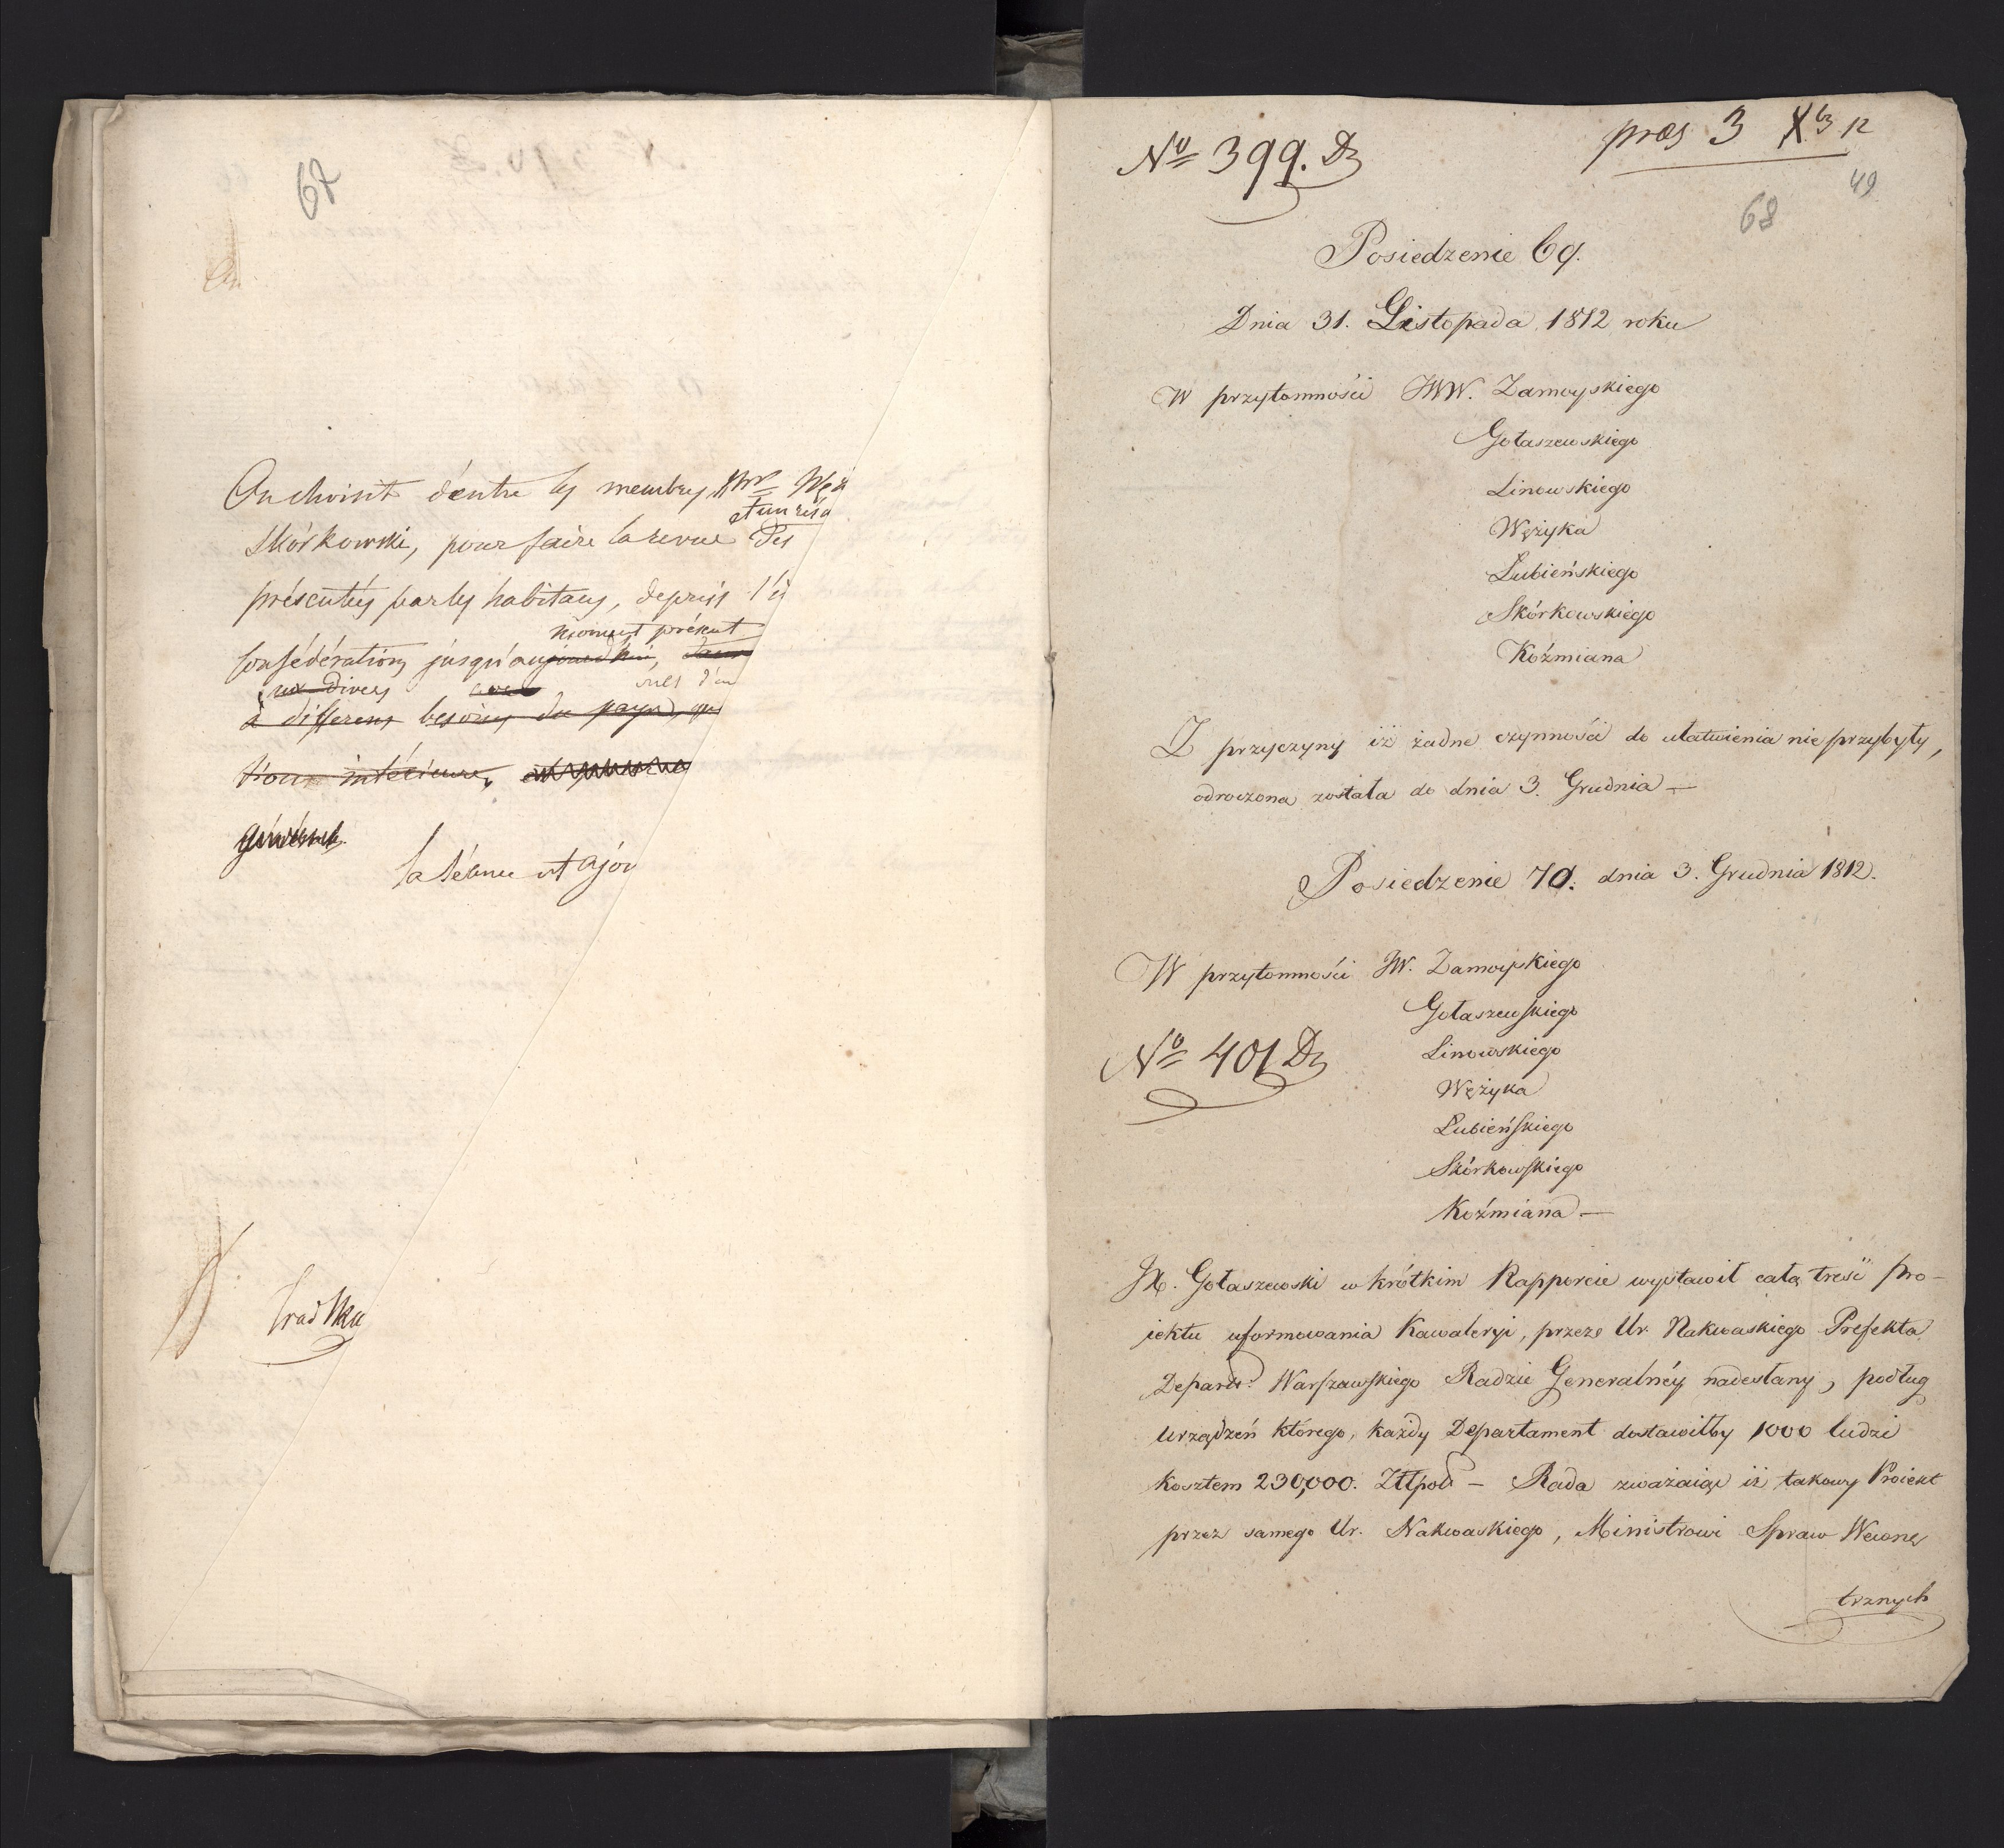 67
On choisit d'entre les membres JWW Węż
et un résu
Skórkowski, pour faire la revue des
présentés par les habitans, depuis l'é
moment présent
confédération jusqu'aujourd'hui,
aux divers
à differens besoins du pays,
tions intérieures,
générale.
la séance est ajou
trad Ka
No 399. Dz
præs 3 Xb 12
49
68
Posiedzenie 69.
Dnia 31. Listopada 1812 roku
W przytomności JWW. Zamoyskiego
Gołaszewskiego
Linowskiego
Wężyka
Łubieńskiego
Skórkowskiego
Koźmiana
Z przyczyny iż żadne czynności do ułatwienia nie przybyły,
odroczona została do dnia 3. Grudnia —
Posiedzenie 70. dnia 3. Grudnia 1812.
W przytomności JW. Zamoyskiego
Gołaszewskiego
No 401 Dz
Linowskiego
Wężyka
Łubieńskiego
Skórkowskiego
Koźmiana —
JX. Gołaszewski w krótkim Rapporcie wystawił całą treść Pro-
iektu uformowania Kawaleryi, przez Ur. Nakwaskiego Prefekta
Departt. Warszawskiego Radzie Generalnéy nadesłany, podług
urządzeń którego, każdy Departament dostawiłby 1000 ludzi
kosztem 230,000. Złtpol — Rada zważaiąc iż takowy Proiekt
przez samego Ur. Nakwaskiego, Ministrowi Spraw Wewnę
trznych